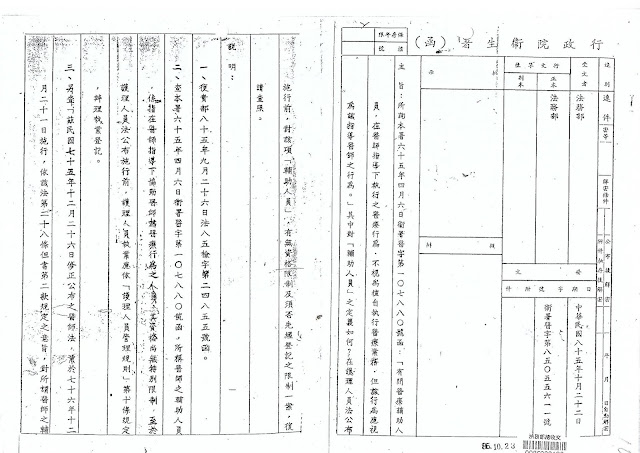 行政院衛生署（函）
保存年限
檔號
速別
速件
密等
解密條件
公布後解密
附件抽存後解密
年 月 日自動解密
受文者
法務部
行文單位
正本
法務部
副本
發文
日期
字號
附件
中華民國八十五年十月二十二日
衛署醫字第八五０五五六一一號
批示
擬辦
主旨：所詢本署六十五年四月六日衛署醫字第一０七八八０號函：「有關醫療輔助人
員，在醫師指導下執行之醫療行為，不視為擅自執行醫療業務，但該行為應視
為該指導醫師之行為。」其中對「輔助人員」之定義如何？在護理人員法公布
施行前，對該項「輔助人員」，有無資格限制及須否先經登記之限制一案，復
請查照。
說明：
一、復貴部八十五年九月二十六日法八五檢字第二四八五五號函。
二、查本署六十五年四月六日衛署醫字第一０七八八０號函，所稱醫師之輔助人員
，係指在醫師指導下協助醫師為醫療行為之人員，其資格尚無特別限制，至於
護理人員法公布施行前，護理人員執業應依「護理人員管理規則」第十條規定
辦理執業登記。
三、另查「茲民國七十五年十二月二十六日修正公布之醫師法，業於七十六年十二
月二十一日施行，依該法第二十八條但書第二款規定之意旨，對所稱醫師之輔
85.10.23
法務部總收文